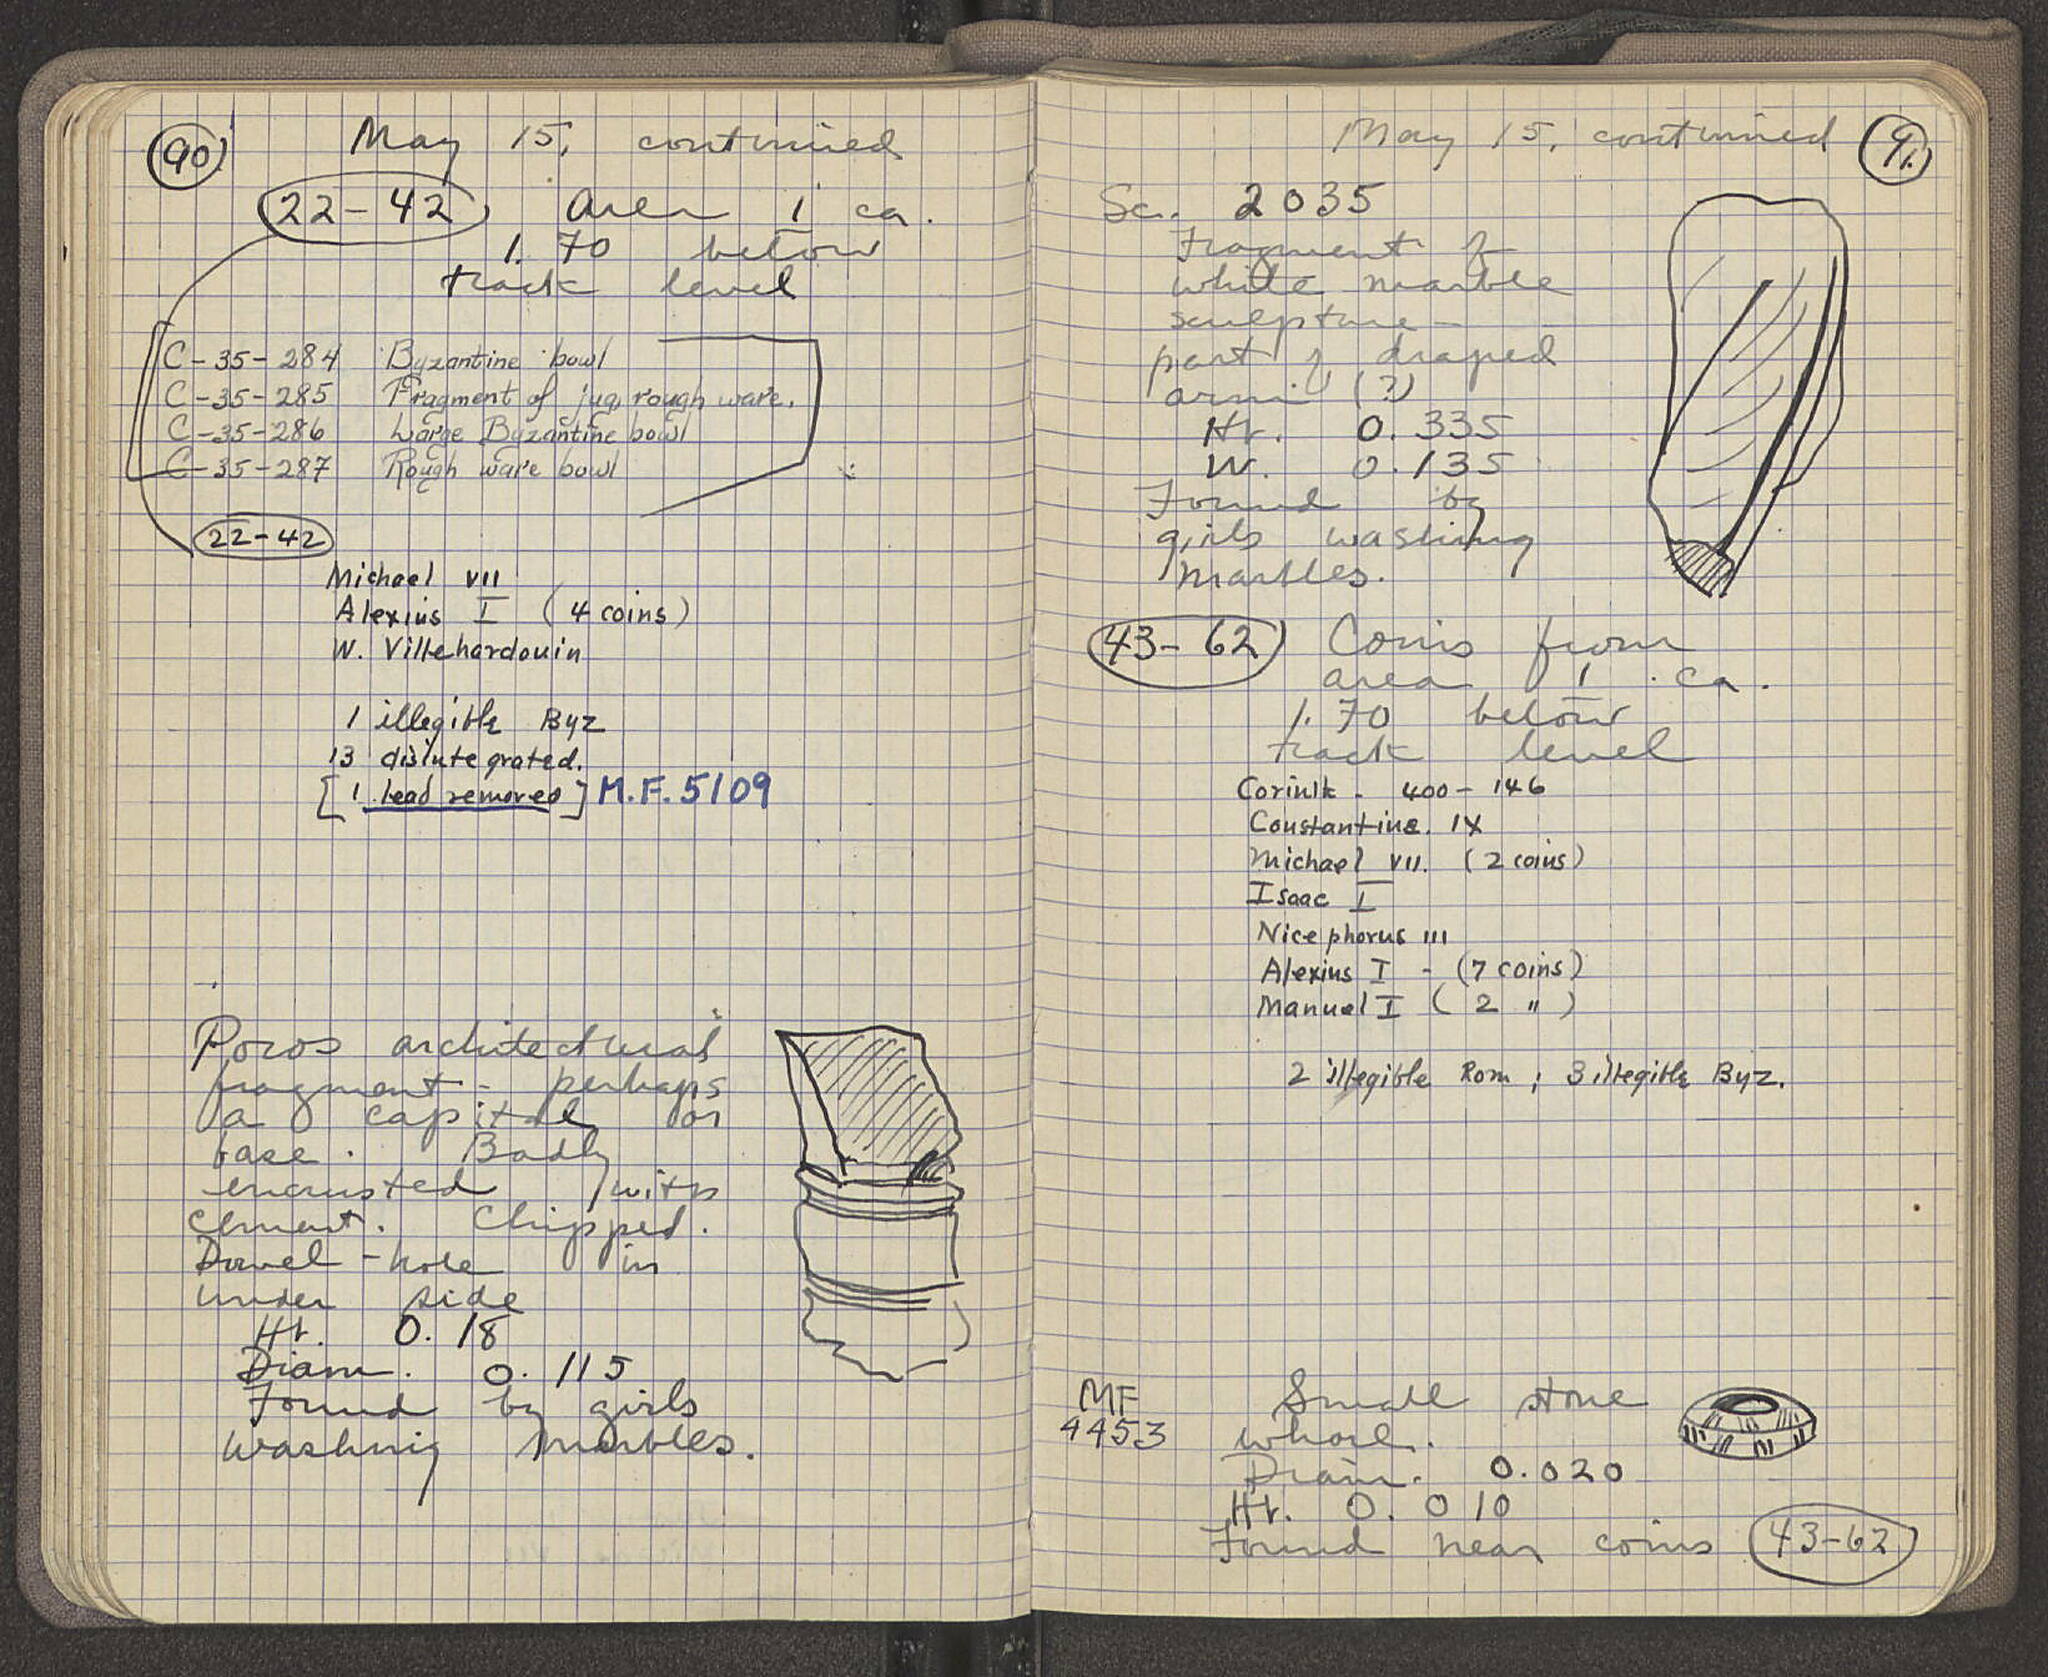 90
May 15, continued
22-42 area 1 ca.
1.70 below
track level
C-35-284 Byzantine bowl
C-35-285 Fragment of jug, rough ware.
C-35-286 Large Byzantine bowl
C-35-287 Rough ware bowl
22-42
Michael VII
Alexius I (4 coins)
W. Villehardouin
1 illegible Byz
13 disintegrated.
[1 lead removed] M.F. 5109
Poros architectural
fragment - perhaps
a capital or
base. Badly
encrusted with
cement. Chipped.
Dowel-hole in
under side
Ht. 0.18
Diam. 0.115
Found by girls
washing marbles.
May 15, continued 91
Sc. 2035
Fragment of
white marble
sculpture -
part of draped
arm (?)
Ht. 0.335
W. 0.135
Found by
girls washing
marbles.
43-62 Coins from
area 1 ca.
1.70 below
track level
Corinth - 400-146
Constantine IX
Michael VII. (2 coins)
Isaac I
Nicephorus III
Alexius I - (7 coins)
Manuel I (2 ")
2 illegible Rom; 3 illegible Byz.
MF Small stone
4453 whorl.
Diam. 0.020
Ht. 0.010
Found near coins 43-62